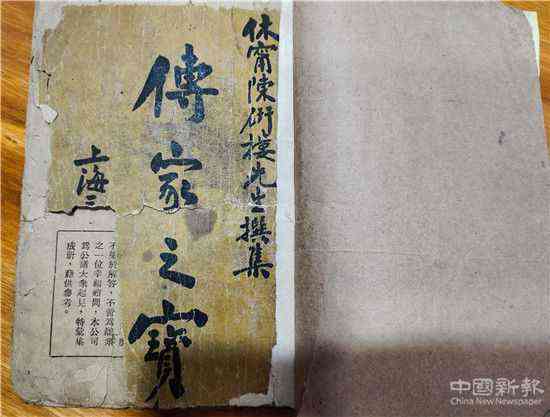 休甯陳衍樓先生撰集
傳家之寶
上海三
解答，不啻爲
之一位幸福顧問，本公司
爲公諸大衆起見，特彙集
成册，藉供參考。
中國新報
China New Newspaper